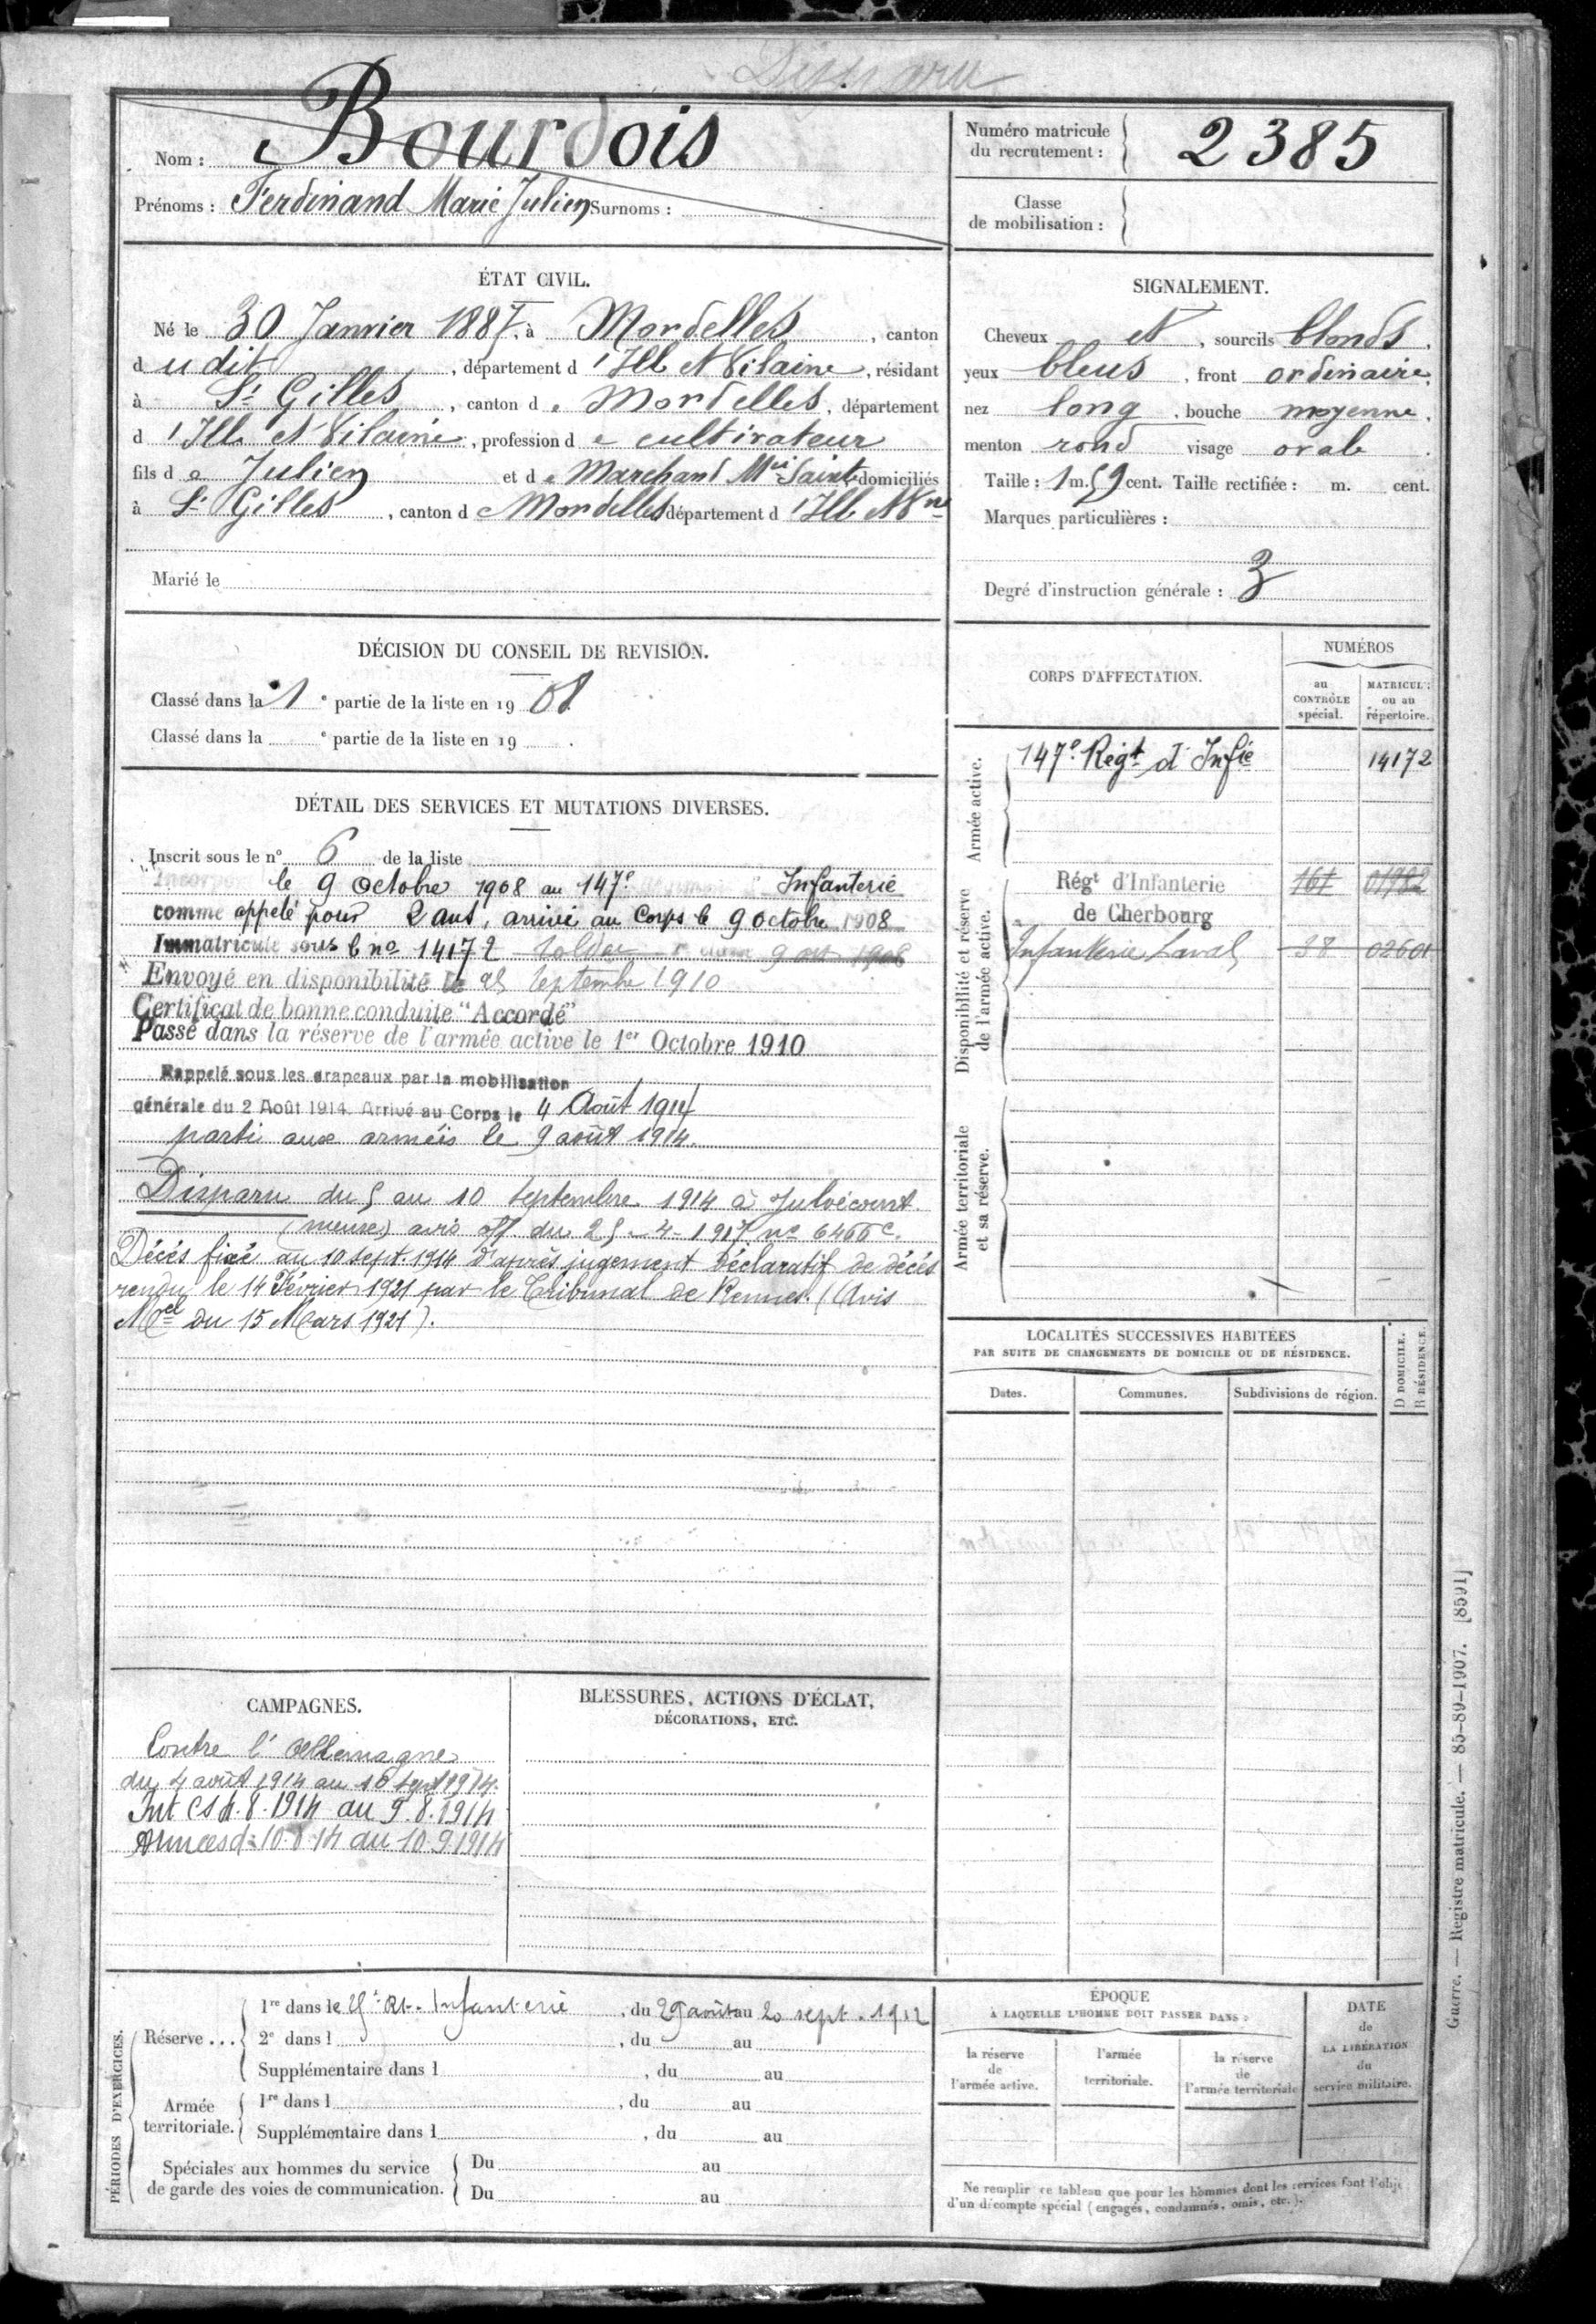 Disparu
Nom : Bourdois
Prénoms : Ferdinand Marie Julien Surnoms :
Numéro matricule du recrutement : 2385
Classe de mobilisation :
ÉTAT CIVIL.
Né le 30 Janvier 1887, à Mordelles, canton
d u dit, département d 'Ille et Vilaine, résidant
à St Gilles, canton d e Mordelles, département
d 'Ille et Vilaine, profession d e cultivateur
fils d e Julien et d e Marchand Mie Sainte domiciliés
à St Gilles, canton d e Mordelles département d 'Ille et Vne
Marié le
SIGNALEMENT.
Cheveux et, sourcils blonds,
yeux bleus, front ordinaire,
nez long, bouche moyenne,
menton rond visage ovale.
Taille : 1 m. 59 cent. Taille rectifiée : m. cent.
Marques particulières :
Degré d'instruction générale : 3
DÉCISION DU CONSEIL DE REVISION.
Classé dans la 1e partie de la liste en 19 08.
Classé dans la e partie de la liste en 19 .
CORPS D'AFFECTATION.
NUMÉROS
au CONTRÔLE spécial.
MATRICULE ou au répertoire.
Armée active.
147e Régt d'Infie 14172
Disponibilité et réserve de l'armée active.
Régt d'Infanterie 161 01982
de Cherbourg
Infanterie Laval 38 02601
Armée territoriale et sa réserve.
DÉTAIL DES SERVICES ET MUTATIONS DIVERSES.
Inscrit sous le n° 6 de la liste
Incorporé le 9 Octobre 1908 au 147e Infanterie
comme appelé pour 2 ans, arrivé au Corps le 9 octobre 1908
Immatriculé sous le no 14172 soldat
Envoyé en disponibilité le 25 Septembre 1910
Certificat de bonne conduite "Accordé"
Passé dans la réserve de l'armée active le 1er Octobre 1910
Rappelé sous les drapeaux par la mobilisation
générale du 2 Août 1914. Arrivé au Corps le 4 Août 1914
parti aux armées le 9 août 1914.
Disparu du 5 au 10 septembre 1914 à Julvécourt
(meuse) avis off. du 25-4-1917 no
Décès fixé au 10 sept. 1914 d'après jugement déclaratif de décès
rendu le 14 Février 1921 par le Tribunal de Rennes. (Avis
Mel du 15 Mars 1921).
LOCALITÉS SUCCESSIVES HABITÉES
PAR SUITE DE CHANGEMENTS DE DOMICILE OU DE RÉSIDENCE.
Dates. Communes. Subdivisions de région. D DOMICILE. R RÉSIDENCE.
CAMPAGNES.
Contre l'Allemagne
du 4 août 1914 au 10 sept 1914.
Int CS 4.8.1914 au 9.8.1914
Armées d: 10.8.14 au 10.9.1914
BLESSURES, ACTIONS D'ÉCLAT,
DÉCORATIONS, ETC.
PÉRIODES D'EXERCICES.
Réserve...
1re dans le Rt. Infanterie, du 29 août au 20 sept. 1912
2e dans l, du au
Supplémentaire dans l, du au
Armée territoriale.
1re dans l, du au
Supplémentaire dans l, du au
Spéciales aux hommes du service
de garde des voies de communication.
Du au
Du au
ÉPOQUE
À LAQUELLE L'HOMME DOIT PASSER DANS :
la réserve de l'armée active.
l'armée territoriale.
la réserve de l'armée territoriale
DATE de LA LIBÉRATION du service militaire.
Ne remplir ce tableau que pour les hommes dont les services font l'obje
d'un décompte spécial (engagés, condamnés, omis, etc.).
Guerre. — Registre matricule. — 85-89-1907. [8591]